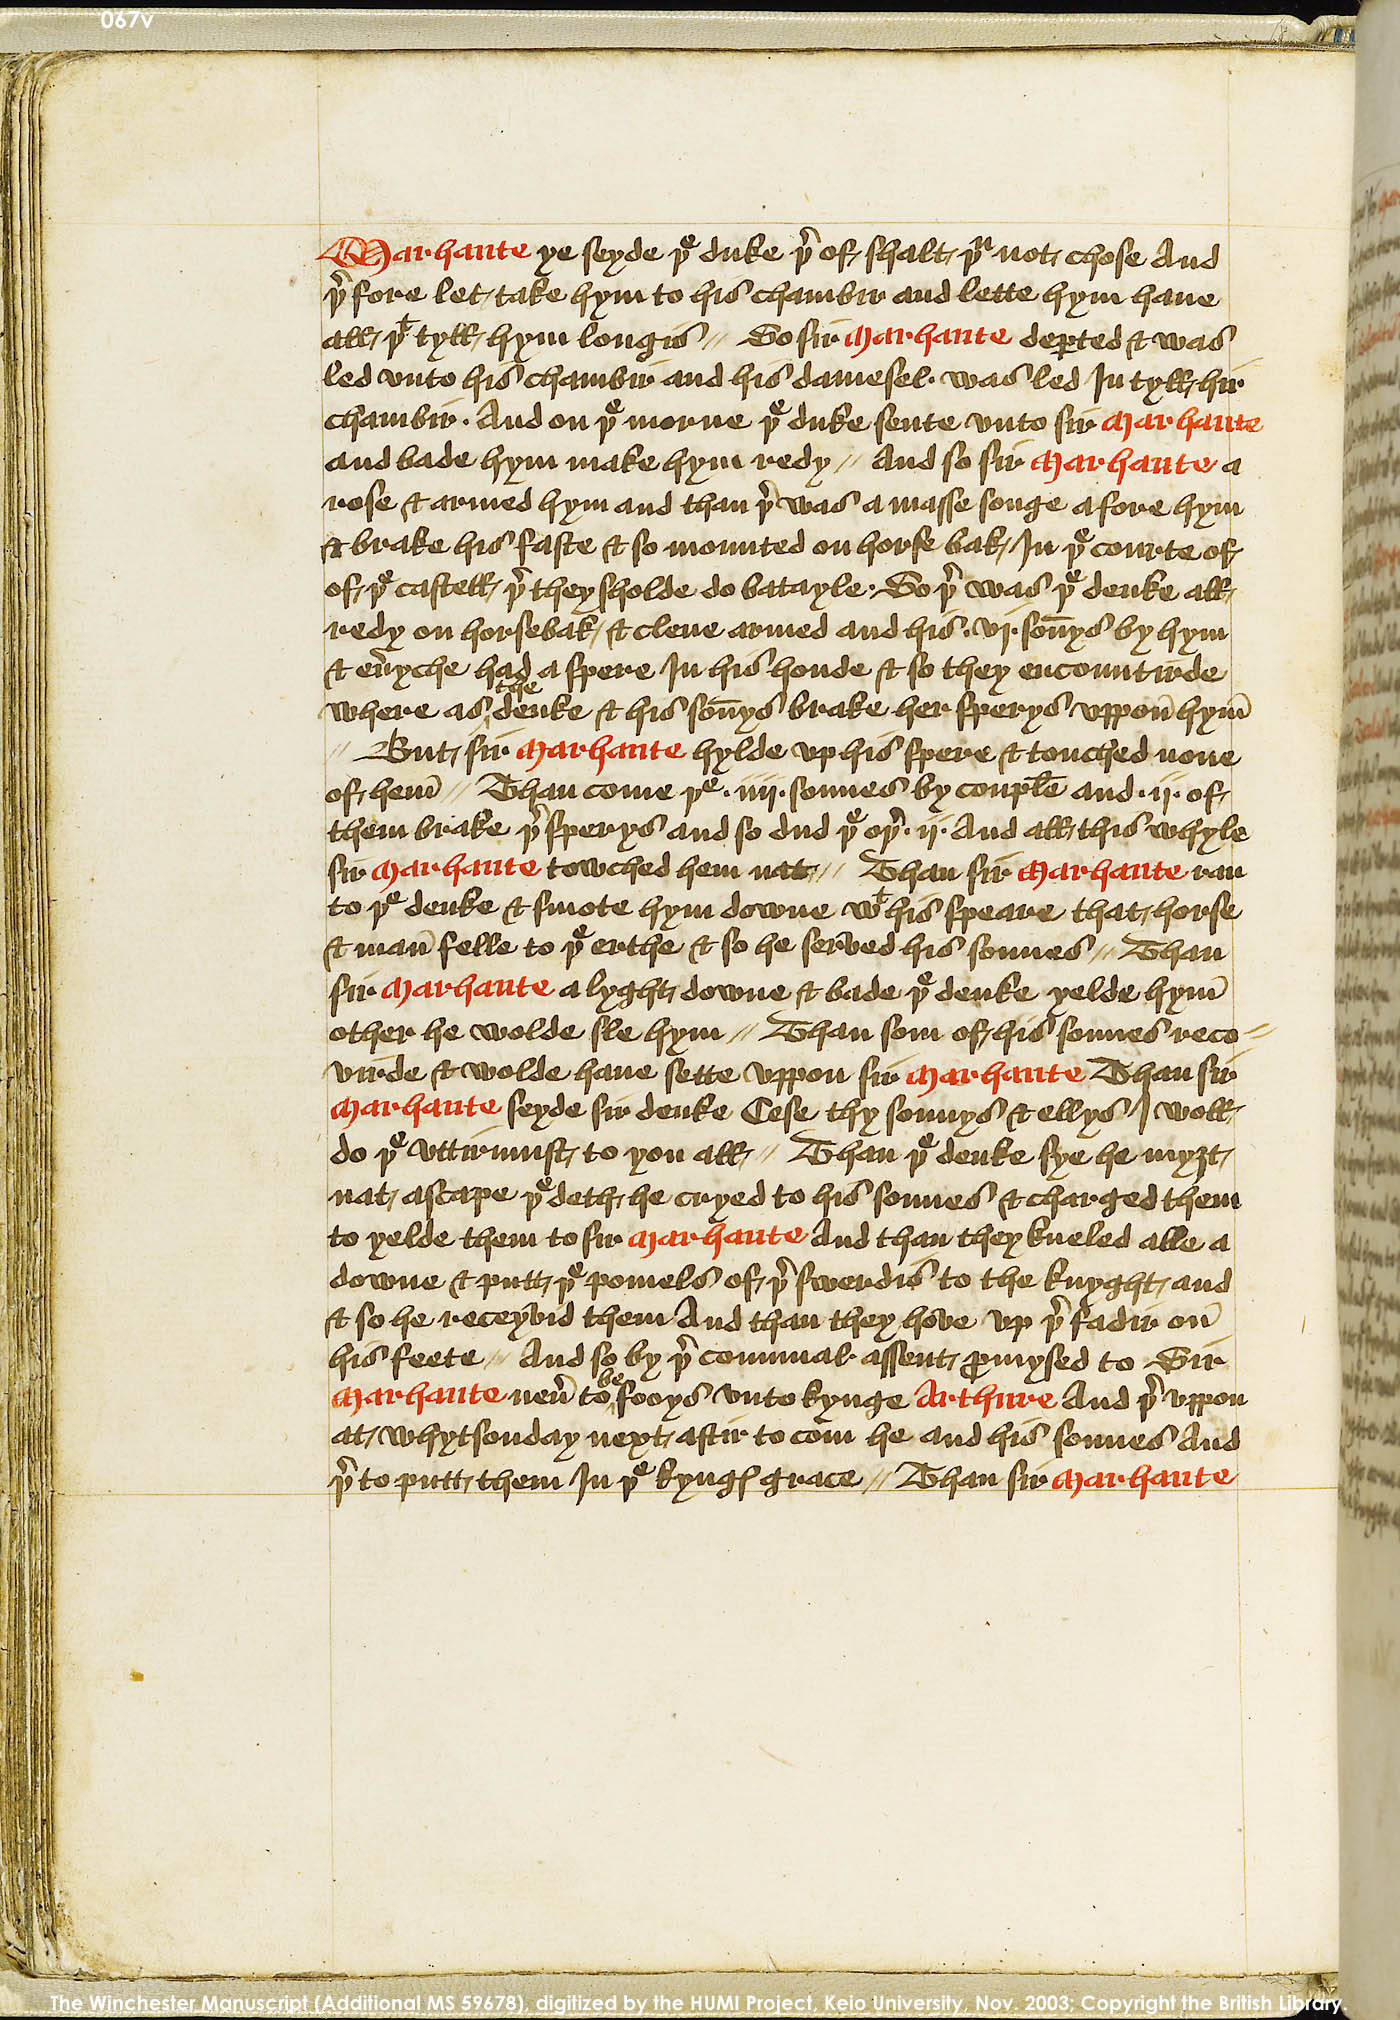 067v
Marhante ye seyde þe duke þer of shalt þu not chose And
þer fore let take hym to his chambir and lette hym haue
all þt tyll hym longis // So sir Marhante deꝑted & was
led vnto his chambir and his damesel was led In tyll hir
chambir . And on þe morne þe duke sente vnto sir Marhante
and bade hym make hym redy // And so sir Marhante a
rose & armed hym and than þer was a masse songe a fore hym
& brake his faste & so mounted on horse bak In þe courte of
of þe castell þer they sholde do batayle . So þer was þe deuke all
redy on horsebak & clene armed and his . vj . soñys by hym
& eũyche had a spere In his honde & so they encountirde
where as the deuke & his soñys brake her sperys vppoñ hym̃
// But sir Marhante hylde vp his spere & touched none
of hem̃ // Than come þe . iiij . sonnes by couple and . ij . of
them brake þer sperys and so dud þe oþer . ij . And all this whyle
sir Marhante towched hem nat // Than sir Marhante ran
to þe deuke & smote hym downe wt his speare that horse
& mañ felle to þe erthe & so he serũed his sonnes // Than
sir Marhante a lyght downe & bade þe deuke yelde hym̃
other he wolde sle hym // Than som of his sonnes reco=
virde & wolde haue sette vppon sir Marhante Than sir
Marhante seyde sir deuke Cese thy sonnys & ellys I woll
do þe vttirmust to you all // Than þe deuke sye he myȝt
nat ascape þe deth he cryed to his sonnes & charged them
to yelde them to sir Marhante And than they kneled alle a
downe & putt þe pomels of þer swerdis to the knyght and
& so he receyvid them And than they hove vp þer fadir oñ
his feete // And so by þer comunal assent ꝓmysed to Sir
Marhante neũ to be fooys vnto kynge Arthure And þer vppon
at whytsonday next aftir to com he and his sonnes And
þer to putt them In þe kyngꝭ grace // Than sir Marhante
The Winchester Manuscript (Additional MS 59678), digitized by the HUMI Project, Keio University, Nov. 2003; Copyright the British Library.